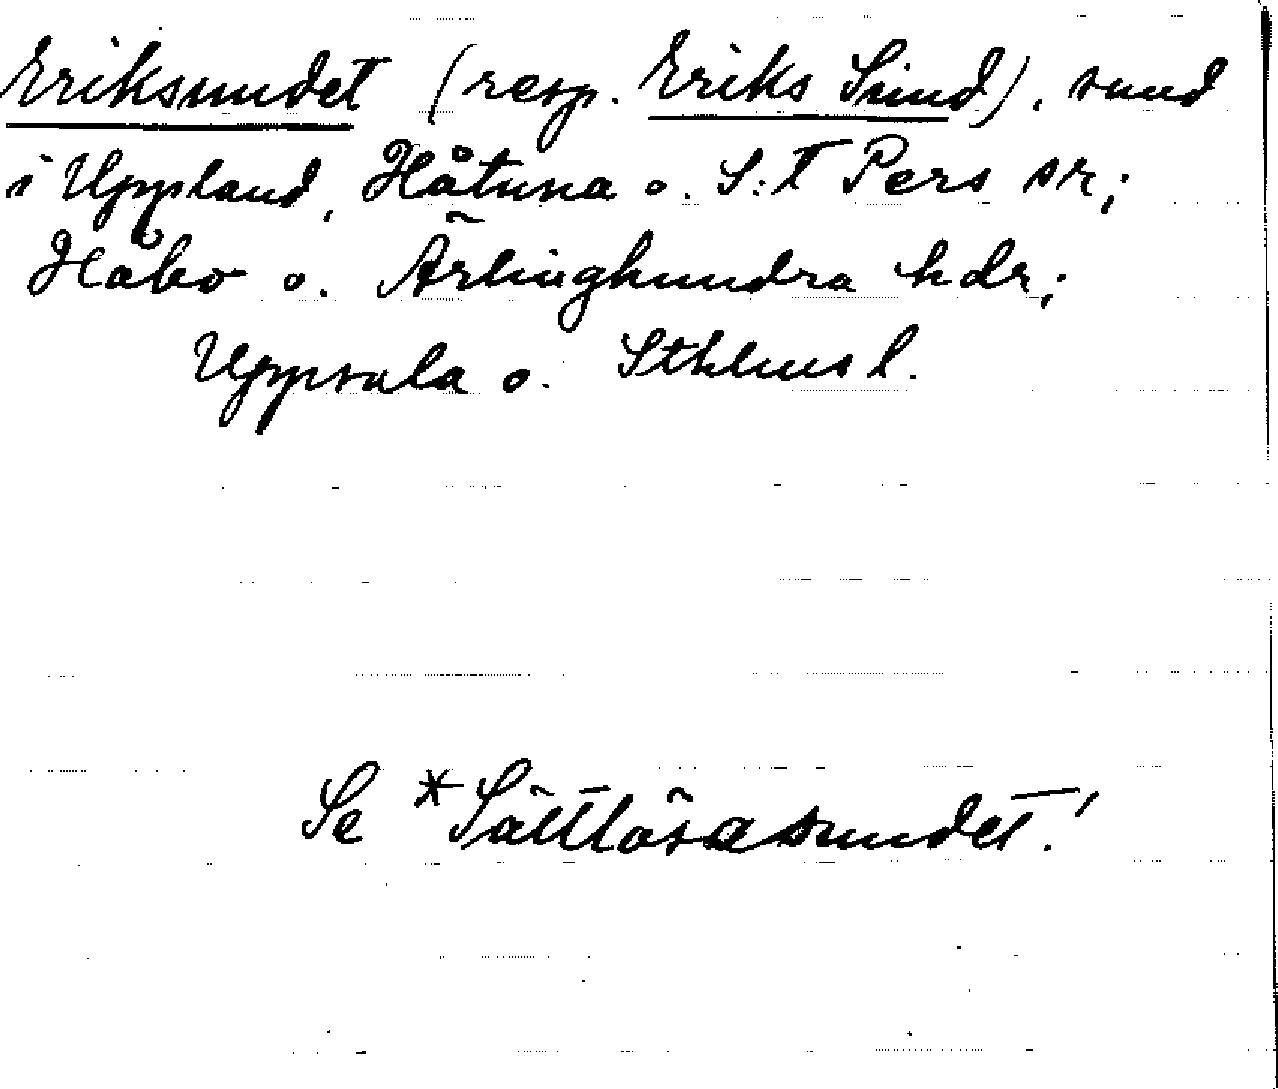 Eriksundet (resp. Eriks Sund), sund
i Uppland, Håtuna o. S:t Pers sr;
Håbo o. Ärlinghundra hdr;
Uppsala o. Sthlms l.
Se *Sättlösasundet!